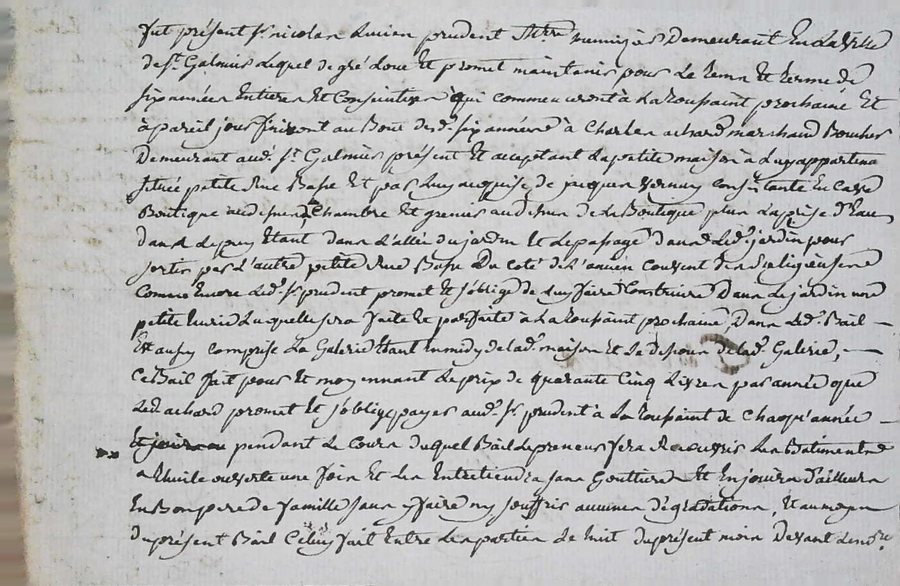 fut présent Sr nicolas Lucien prudent Me menuizier Demeurant En La Ville
de St Galmier Lequel de gré Loue Et promet maintenir pour Le tems Et terme de
six années Entieres Et Consécutives qui commenceront à La toussaint prochaine Et
à pareil jour finiront au Bout desd. six années à Charles achard marchand Boucher
Demeurant aud. St Galmier présent Et acceptant La petite maison à Luy appartena
située petite Rue Basse Et par Luy acquise de jacques Consistante En Cave
Boutique au dessus Chambre Et grenier audessus de La Boutique plus La prise d'Eau
dans Le puy Etant dans L'allée du jardin Et Le passage dans Led. jardin pour
sortir par L'autre petite Rue Basse Du coté de L'ancien Couvent des Religieuses
Comme Encore Led. Sr prudent promet Et s'oblige de Luy faire Construire Dans Le jardin une
petite Ecurie Laquelle sera faite Et parfaite à La toussaint prochaine, Dans Led. Bail
Est aussy comprise La Galerie Etant En midy de lad. maison et Le dessous de lad. Galerie,
Ce Bail fait pour Et moyennant Le prix de quarante Cinq Livres par année que
Led. achard promet Et s'oblige payer aud. Sr prudent à La toussaint de Chaqu'année
pendant Le Cours duquel Bail Le preneur fera Recouvrir Les Batiments
a thuile ouverte une fois Et Les Entretiendra sans Gouttieres Et En jouira d'ailleurs
En Bon pere de famille sans y faire ny souffrir aucunes dégradations, Et au moyen
du présent Bail Celuy fait Entre Les parties Le huit du présent mois Devant Le nore.